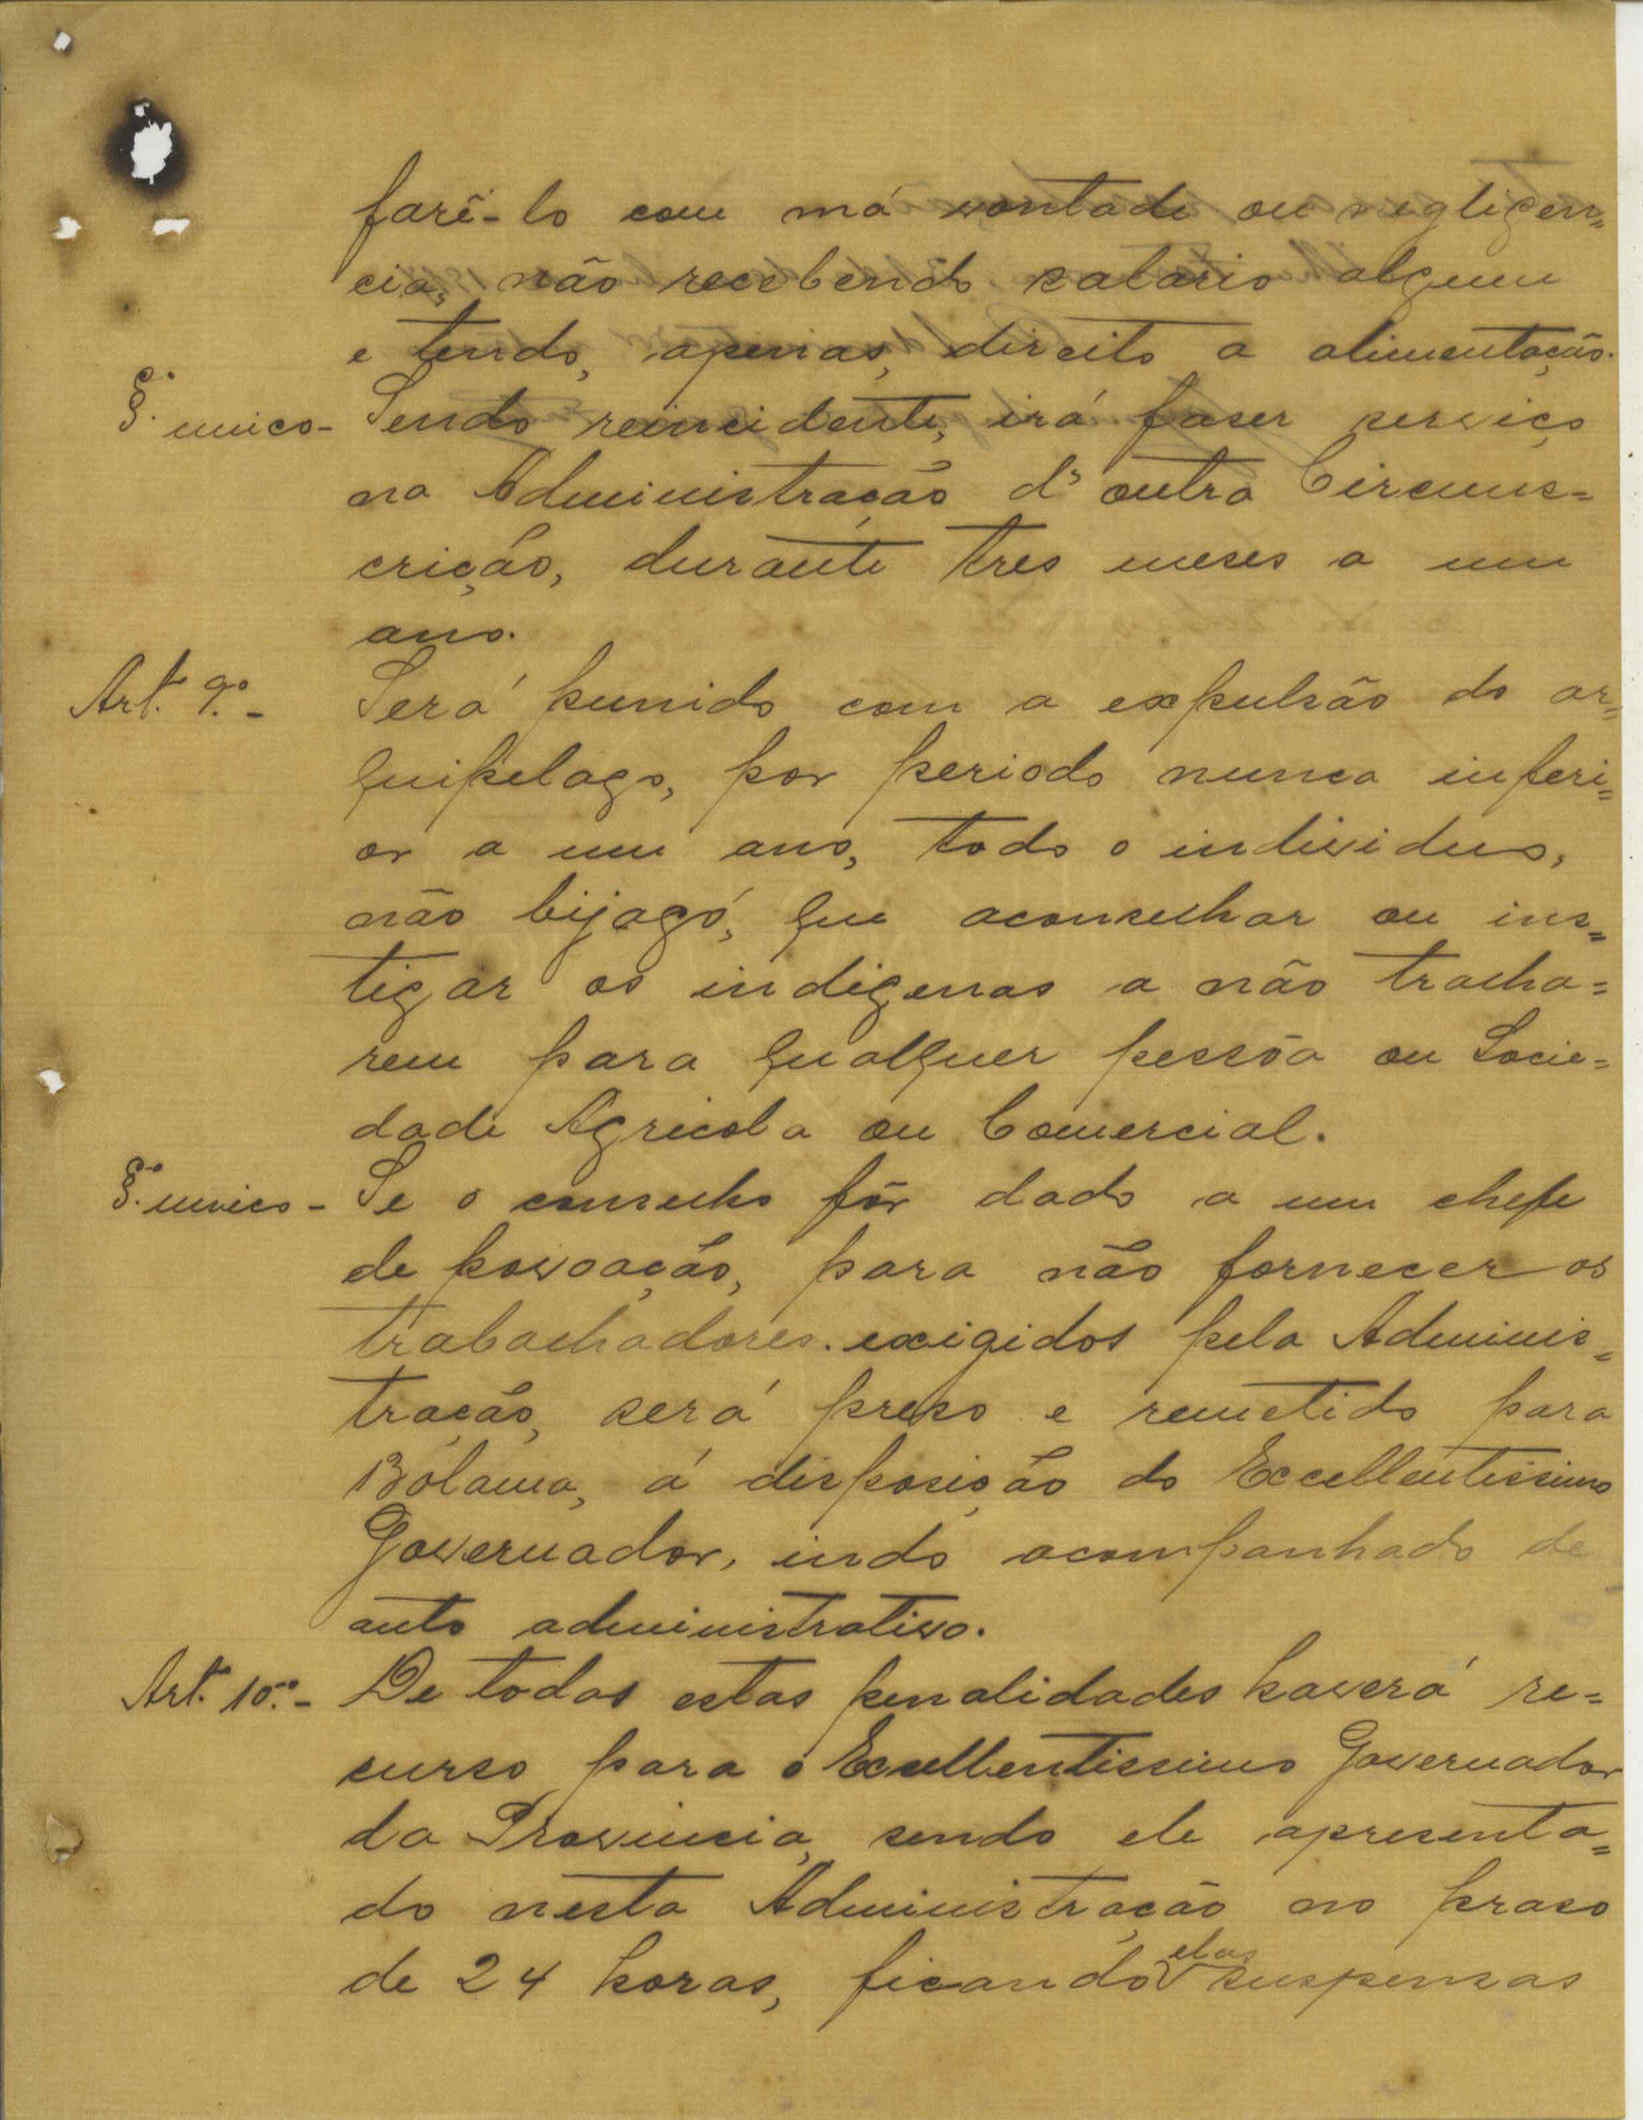 farê-lo com má vontade ou negligen=
cia, não recebendo salario algum
e tendo, apenas, direito a alimentação.
§.º unico - Sendo reincidente, irá faser serviço
na Administração d'outra Circuns=
crição, durante tres meses a um
ano.
Art. 9.º - Será punido com a expulsão do ar=
quipelago, por periodo nunca inferi=
or a um ano, todo o individuo,
não bijagó, que aconselhar ou ins=
tigar os indigenas a não tralha=
rem para qualquer pessôa ou Socie=
dade Agricola ou Comercial.
§.º unico - Se o conselho fôr dado a um chefe
de povoação, para não fornecer os
trabalhadores exigidos pela Adminis=
tração, será preso e remetido para
Bolama, á disposição do Excellentissimo
Governador, indo acompanhado de
auto administrativo.
Art. 10.º - De todas estas penalidades haverá re=
curso para o Excellentissimo Governador
da Provincia, sendo ele apresenta=
do nesta Administração no praso
de 24 horas, ficando elas suspensas